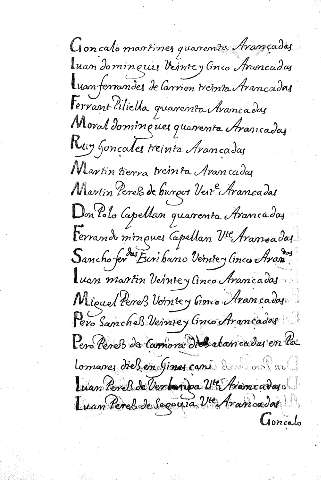 Goncalo martines quarenta Arançadas
Iuan domingues Veinte y Cinco Arancadas
Iuan fernandes de Carrion treinta Arancadas
Ferrant Pitiella quarenta Arancadas
Moral domingues quarenta Arancadas
Ruy Gonçales treinta Arancadas
Martin tierra treinta Arancadas
Martin Pereß de burgos Veit.e Arançadas
Don Polo Capellan quarenta Arancadas
Ferrando mingues Capellan Vte Arancadas
Sancho fer des Escribano Veinte y Cinco Arandas
Iuan martin Veinte y Cinco Arancadas
Miguel Pereß Veinte y Cinco Arancadas
Pero Sancheß Veinte y Cinco Arancadas
Pero Pereß da Camiona dieß arancadas en Pa
lomares dieß en Gines
Iuan Pereß de Vte Arancadas
Iuan Pereß de Segouia Vte Arancadas
Goncalo